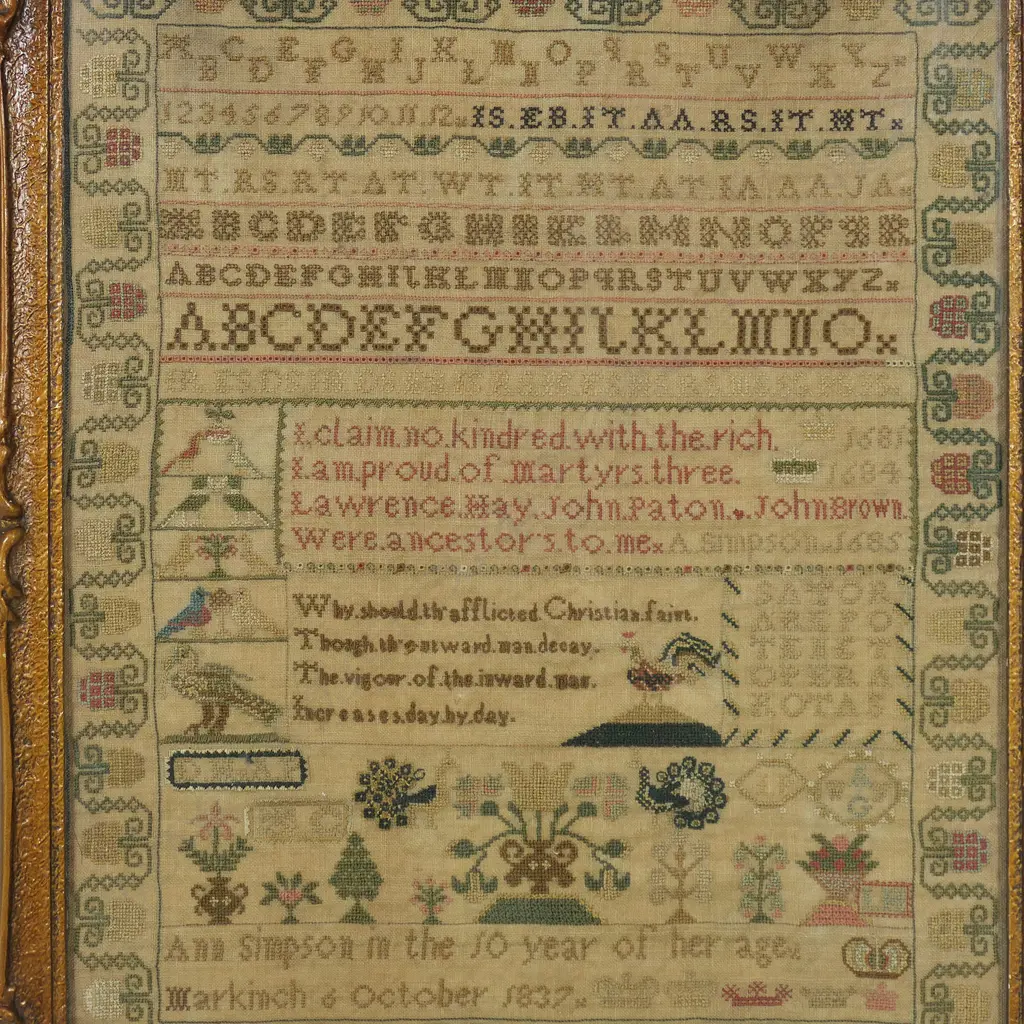 A B C D E F G H I J K L M O P q R S T U V W X Y Z
1 2 3 4 5 6 7 8 9 10 11 12 IS.EB.IT.AA.RS.IT.MT.
MT RS RT AT WT IT MT AT IA AA JA
A B C D E F G H I K L M N O P q R
A B C D E F G H I l K L M N O P q R S T U V W X Y Z
A B C D E F G H I l K L M N O
I.claim.no.kindred.with.the.rich. 1681
I.am.proud.of.martyrs.three. 1684
Lawrence.Hay.John.Paton.John Brown.
Were.ancestors.to.me A.Simpson.1685
Why.should.th'afflicted.Christian.faint.
Though.the outward.man.decay.
The.vigour.of.the.inward.man.
Increases.day.by.day.
SATOR
AREPO
TENET
OPERA
ROTAS
Ann Simpson in the 10 year of her age.
Markinch 6 October 1837